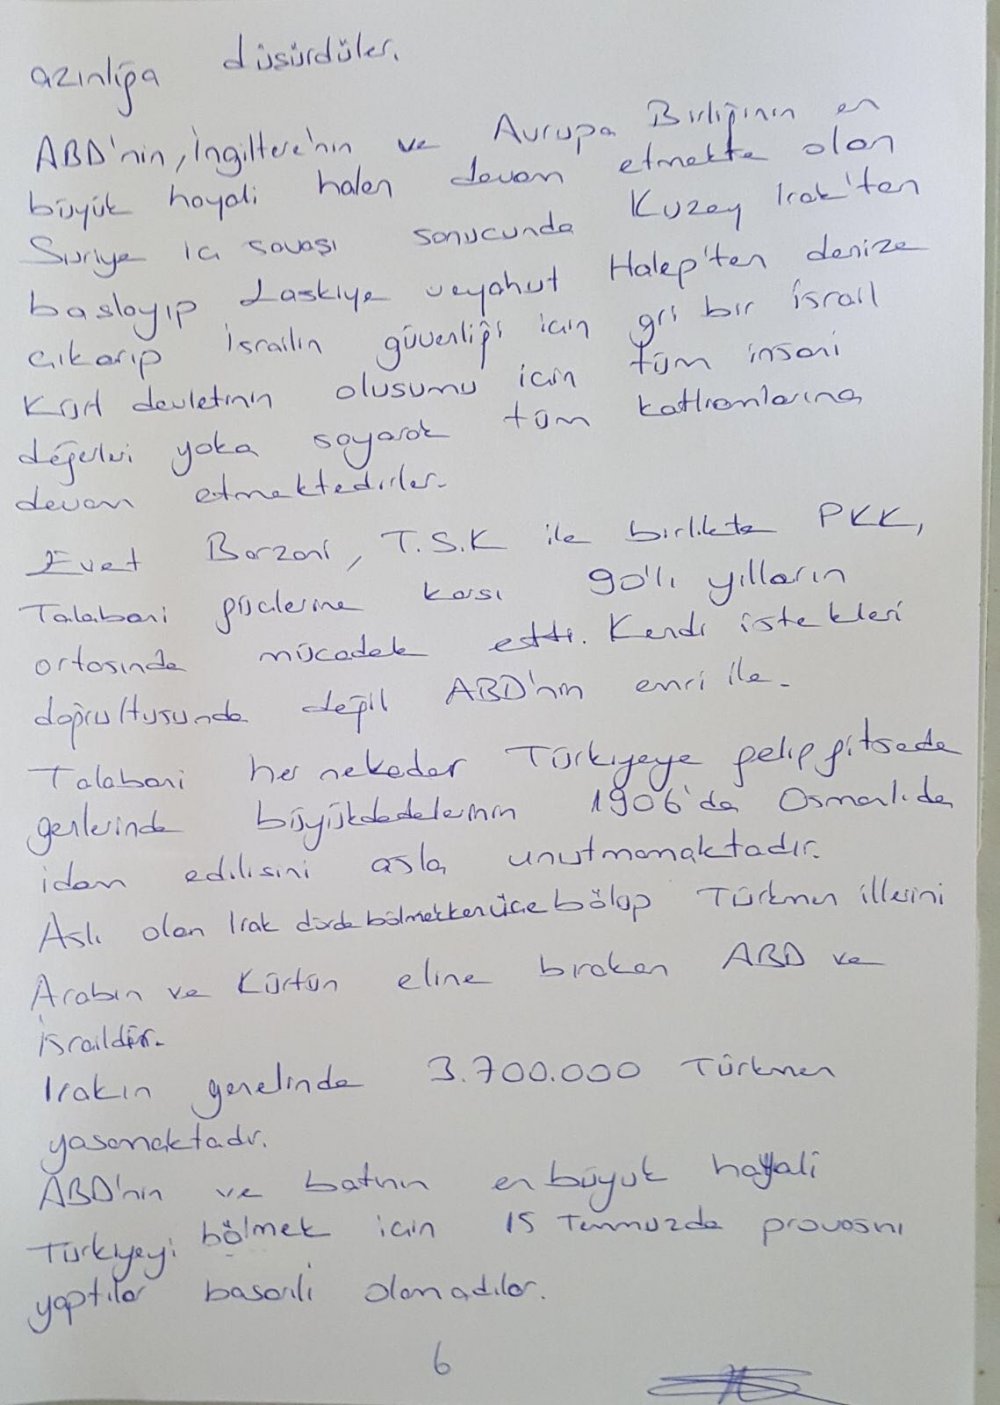 azınlığa düşürdüler.
ABD'nin, İngiltere'nin ve Avrupa Birliğinin en
büyük hayali halen devam etmekte olan
Suriye iç savaşı sonucunda Kuzey Irak'tan
baslayıp Laskiye veyahut Halep'ten denize
çıkarıp İsrailin güvenliği için gri bir İsrail
Kürt devletinin olusumu icin tüm insani
değerleri yoka sayarak tüm katliamlarına
devam etmektedirler.
Evet Barzani, T.S.K ile birlikte PKK,
Talabani güçlerine karsı 90'lı yılların
ortasında mücadele etti. Kendi istekleri
doğrultusunda değil ABD'nin emri ile.
Talabani her nekadar Türkiyeye gelip gitsede
genlerinde büyükdedelerinin 1906'da Osmanlıda
idam edilisini asla unutmamaktadır.
Aslı olan Irak dörde bölmekken üçe bölüp Türkmen illerini
Arabın ve Kürtün eline bırakan ABD ve
İsraildir.
Irakın genelinde 3.700.000 Türkmen
yasamaktadır.
ABD'nin ve batının en büyük hayali
Türkiyeyi bölmek icin 15 Temmuzda provasını
yaptılar basarılı olamadılar.
6